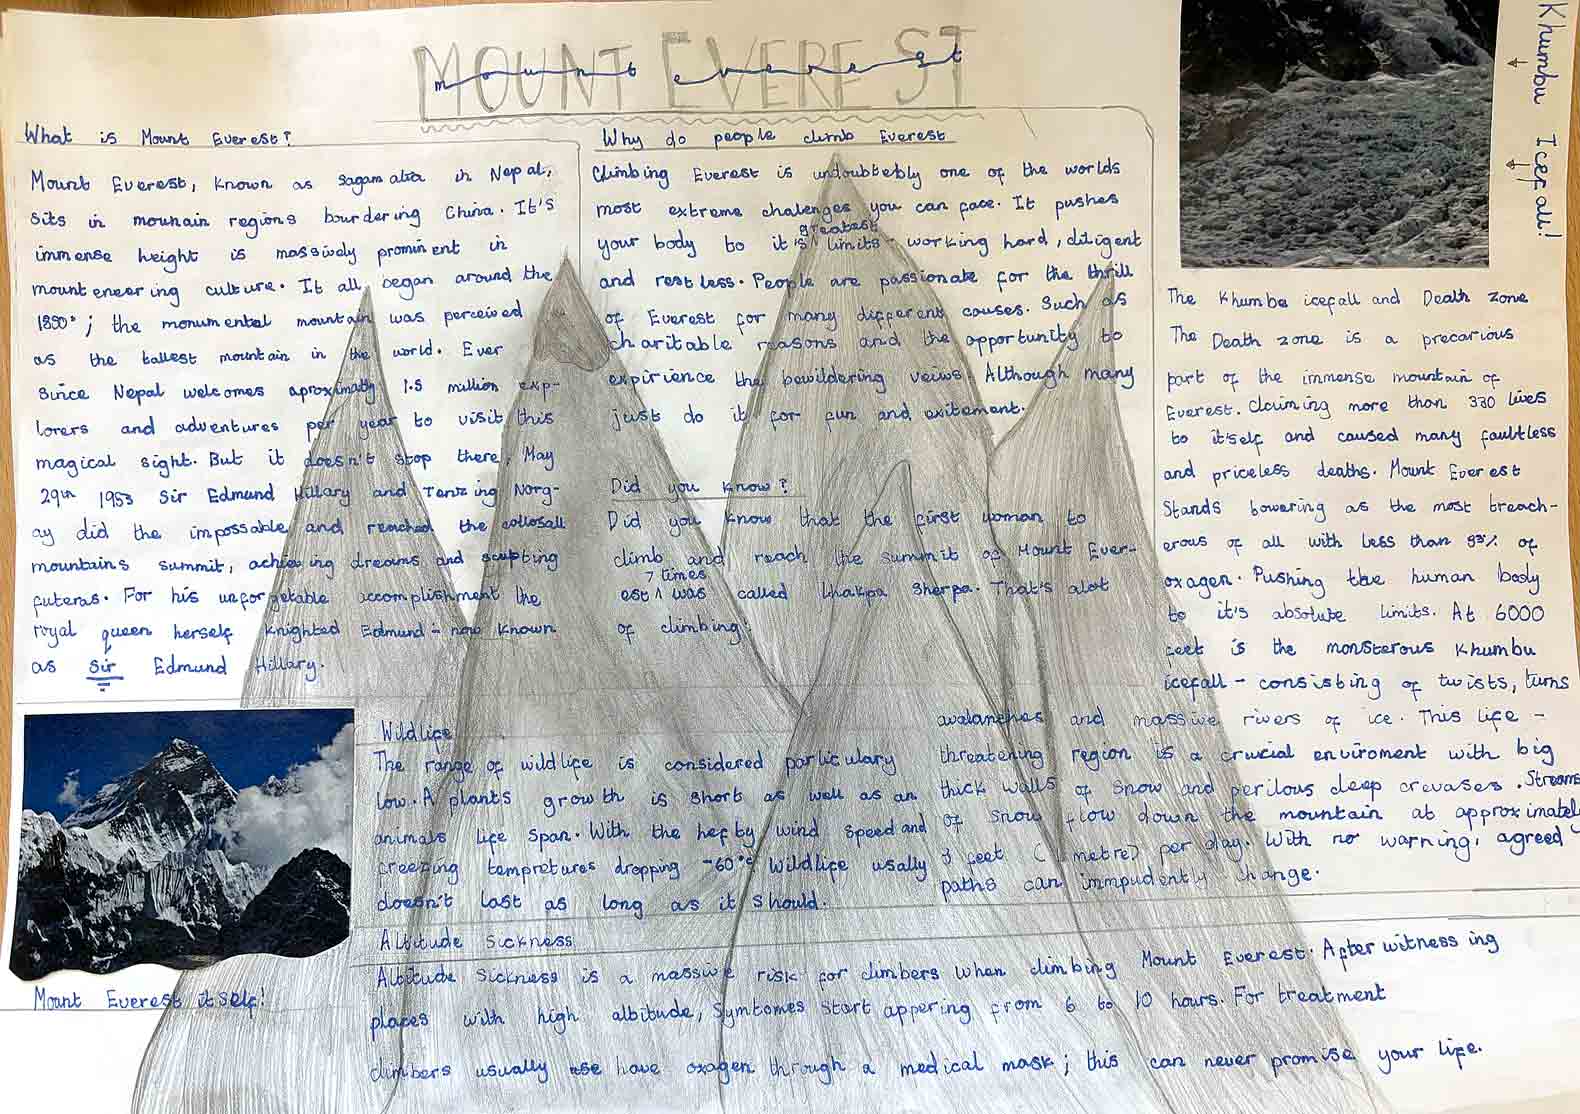 MOUNT EVEREST
mount everest
What is Mount Everest?
Mount Everest, known as Sagamatha in Nepal,
sits in mounain regions bourdering China. It's
immense height is massively prominent in
mounteneering culture. It all began around the
1850s; the monumental mountain was perceived
as the tallest mountain in the world. Ever
since Nepal welcomes aproximatly 1.5 million exp-
lorers and adventures per year to visit this
magical sight. But it doesn't stop there. May
29th 1953 Sir Edmund Hillary and Tenzing Norg-
ay did the impossable and reached the collosall
mountains summit, achieving dreams and sculpting
futeras. For his unforgetable accomplishment the
royal queen herself knighted Edmund - now known
as Sir Edmund Hillary.
Mount Everest itself!
Why do people climb Everest
Climbing Everest is undoubtebly one of the worlds
most extreme chalenges you can face. It pushes
your body to it's greatest limits - working hard, diligent
and restless. People are passionate for the thrill
of Everest for many different causes. Such as
charitable reasons and the opportunity to
expirience the bewildering veiws. Although many
just do it for fun and exitement.
Did you know?
Did you know that the first woman to
climb and reach the summit of Mount Ever-
est 7 times was called Lhakpa Sherpa. That's alot
of climbing!
Wildlife
The range of wildlife is considered particulary
low. A plants growth is short as well as an
animals life span. With the hefty wind speed and
freezing tempretures dropping -60°c wildlife usally
doesn't last as long as it should.
Khumbu Icefall!
The Khumbu icefall and Death zone
The Death zone is a precarious
part of the immense mountain of
Everest. Claiming more than 330 lives
to it'self and caused many faultless
and priceless deaths. Mount Everest
Stands towering as the most treach-
erous of all with less than 33% of
oxagen. Pushing the human body
to it's absolute limits. At 6000
feet is the monsterous Khumbu
icefall - consisting of twists, turns
avalanches and massive rivers of ice. This life -
threatening region is a crucial enviroment with big
thick walls of snow and perilous deep crevases. Streams
of snow flow down the mountain at approximately
3 feet (1 metre) per day. With no warning, agreed
paths can immpudently change.
Altitude Sickness
Altitude Sickness is a massive risk for climbers when climbing Mount Everest. After witnessing
places with high altitude, Symtomes start appering from 6 to 10 hours. For treatment
climbers usually have oxagen through a medical mask; this can never promise your life.